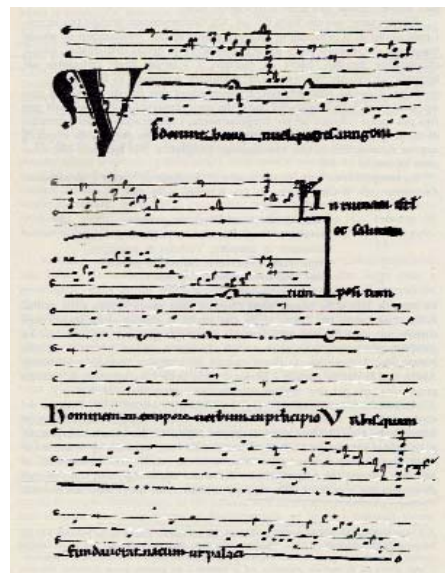 Viderunt hema nuel patris unigeni
In ruinam isrl
et salutem
tum posi tum
hominem in tempore verbum in principio Urbis quam
fundaverat natum in palaci